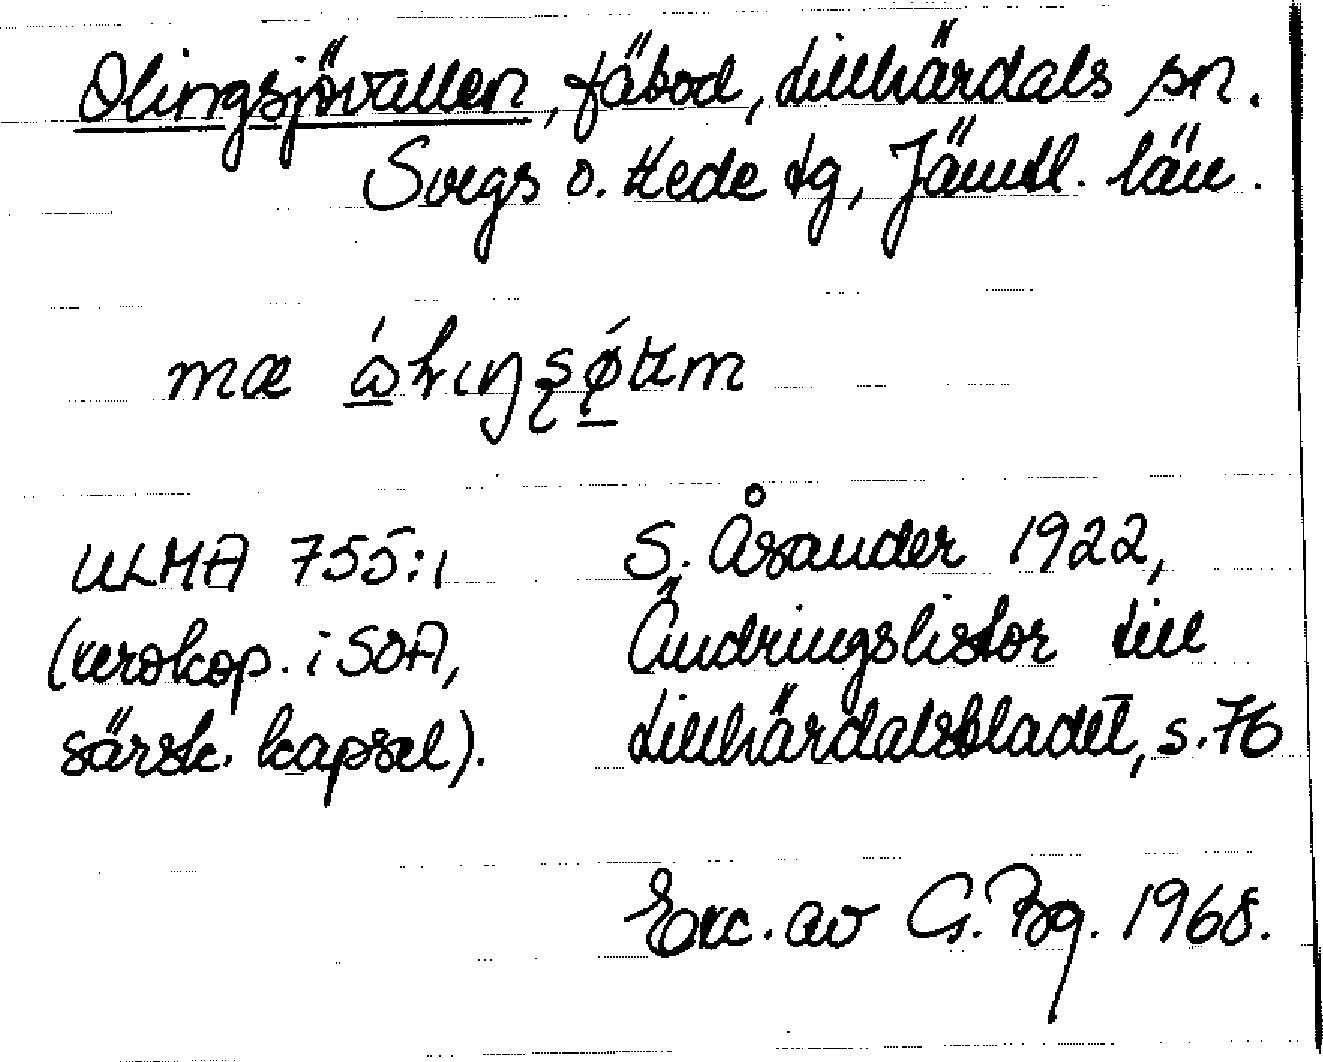 Olingsjövallen, fäbod, Lillhärdals sn.
Svegs o. Hede tg, Jämtl. län.
mæ
ULMA 755:1
(xerokop. i SOA,
särsk. kapsel).
S. Åsander 1922,
Ändringslistor till
Lillhärdalsbladet, s. 76
Exc. av G. Bg. 1968.